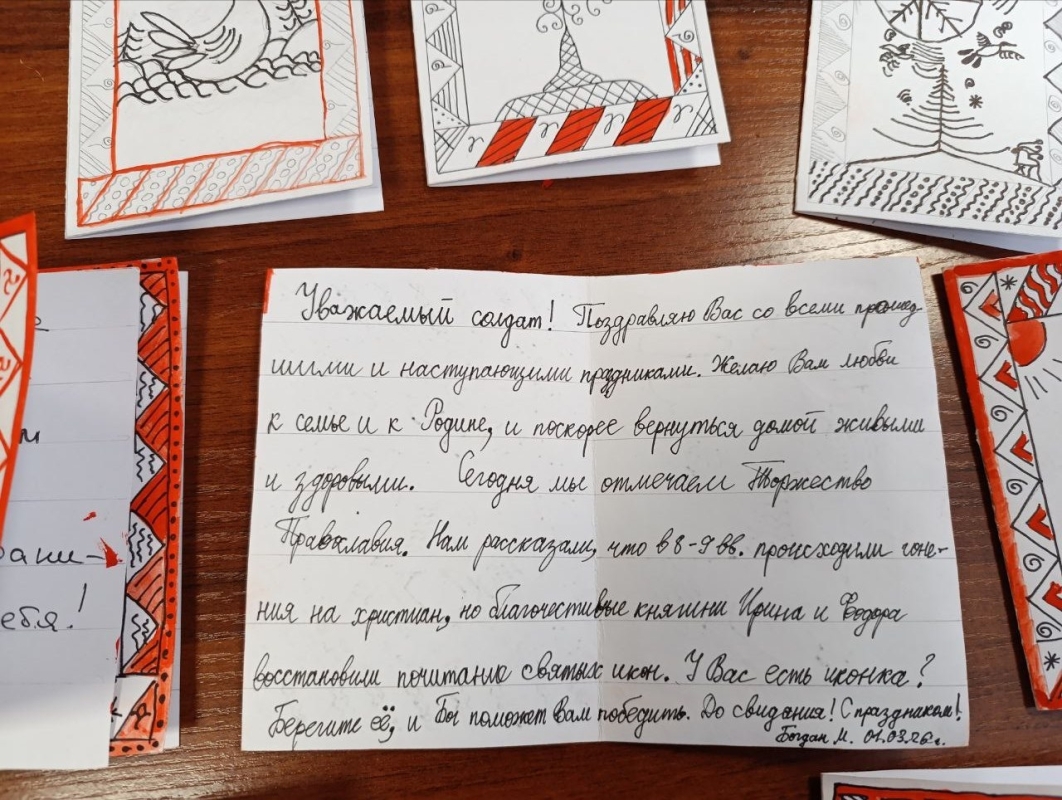 Уважаемый солдат! Поздравляю Вас со всеми прошед-
шими и наступающими праздниками. Желаю Вам любви
к семье и к Родине, и поскорее вернуться домой живыми
и здоровыми. Сегодня мы отмечаем Торжество
Православия. Нам рассказали, что в 8-9 вв. происходили гоне-
ния на христиан, но благочестивые княгини Ирина и Федора
восстановили почитание святых икон. У Вас есть иконка?
Берегите её, и Бог поможет Вам победить. До свидания! С праздником!
Богдан М. 01.03.26г.
ебя!